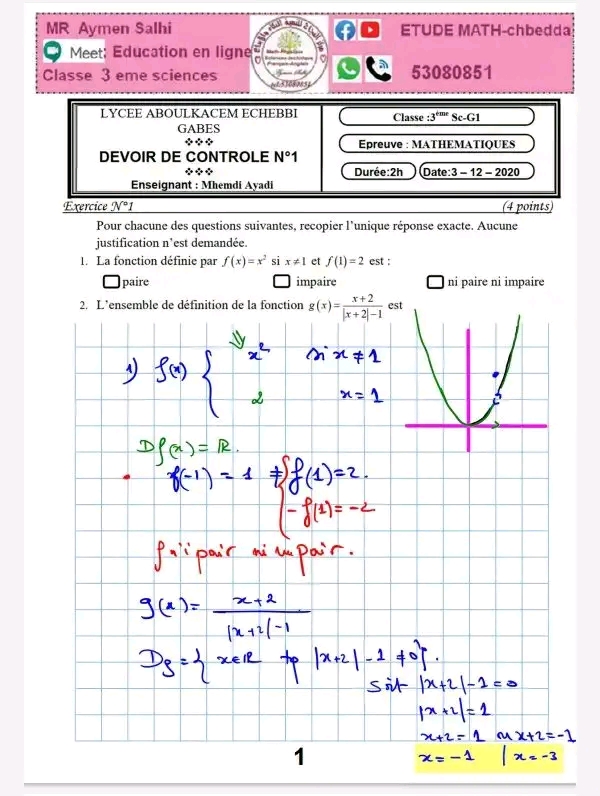 MR Aymen Salhi
Meet: Education en ligne
Classe 3 eme sciences
ETUDE MATH-chbedda
53080851
LYCEE ABOULKACEM ECHEBBI
GABES
DEVOIR DE CONTROLE N°1
Enseignant : Mhemdi Ayadi
Classe :3ème Sc-G1
Epreuve : MATHEMATIQUES
Durée:2h Date:3 – 12 – 2020
Exercice N°1 (4 points)
Pour chacune des questions suivantes, recopier l'unique réponse exacte. Aucune
justification n'est demandée.
1. La fonction définie par f(x)=x² si x≠1 et f(1)=2 est :
paire impaire ni paire ni impaire
2. L'ensemble de définition de la fonction g(x)=(x+2)/(|x+2|−1) est
1) f(x) { x² si x ≠ 1
2 x = 1
Df(x) = ℝ.
f(-1) = 1 ≠ { f(1)=2.
-f(1)=-2
f n'i pair ni impair.
g(x) = (x+2)/(|x+2|-1)
Dg = { x∈ℝ tq |x+2|-1 ≠ 0}.
Soit |x+2|-1=0
|x+2|=1
x+2=1 ou x+2=-1
x=-1 | x=-3
1